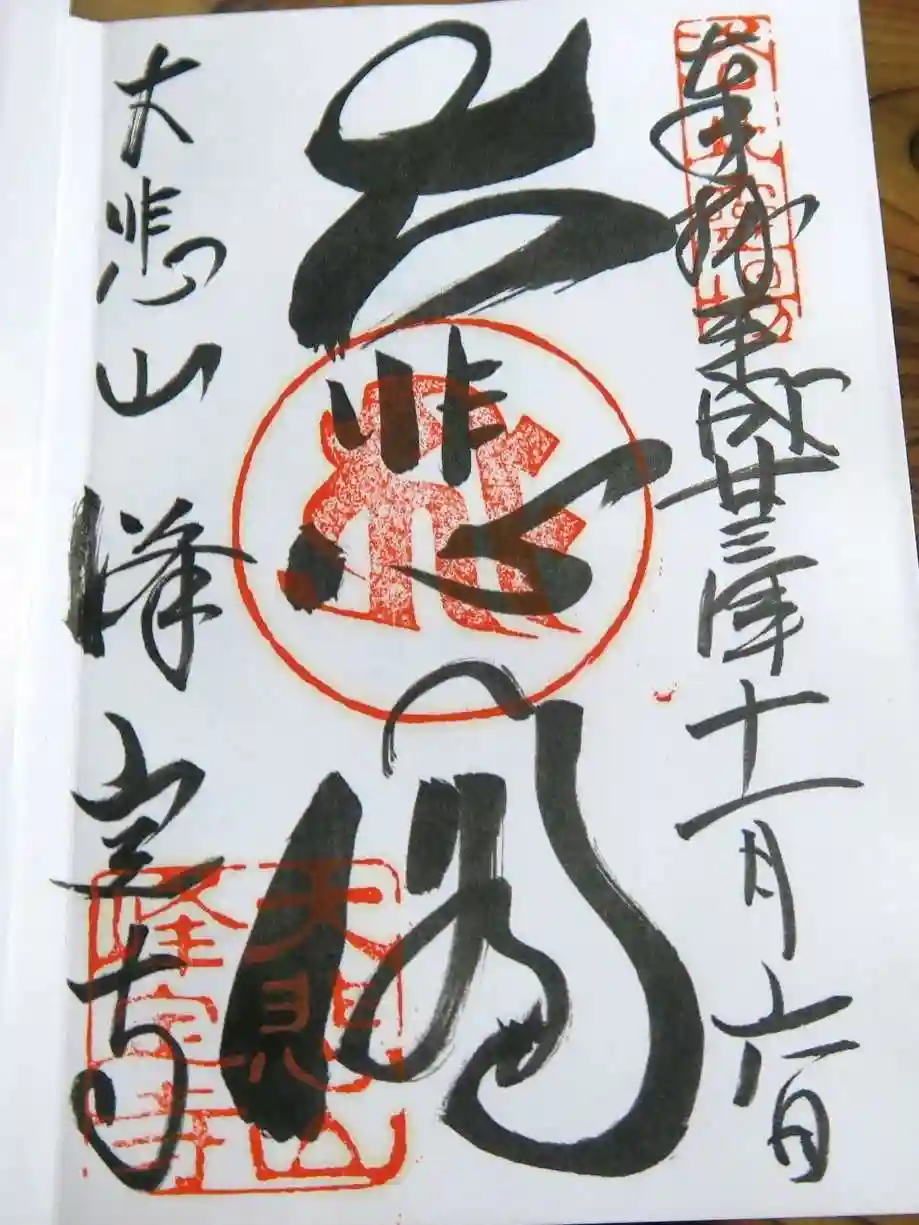 奉拝平成廿三年十一月六日
大悲閣
大悲山 峰定寺
大悲山
峰定寺